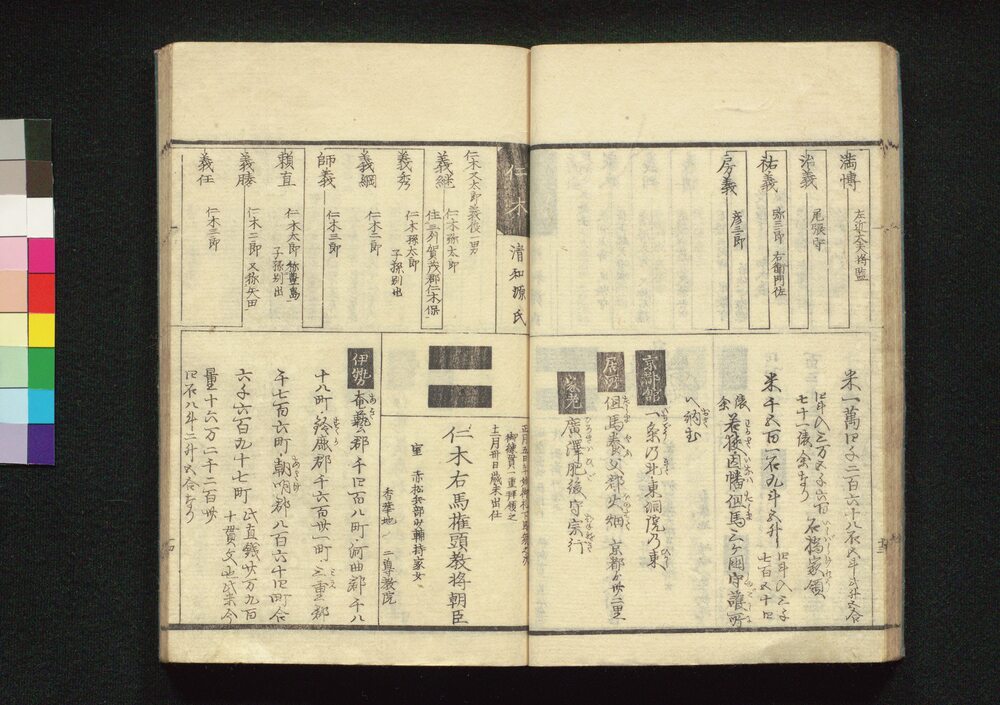 満博 左近大夫将監
治義 尾張守
祐義 弥三郎 右衛門佐
房義 彦三郎
七十一俵余なり 石橋家領
米千五百一石九斗五升
余 若狭因幡但馬三ケ国守護所
へ納む
京詰館 一条乃北東洞院乃東
居所 但馬養父郡 京都ゟ丗二里
家老 廣澤肥後守宗行
仁木 清和源氏
仁木又太郎義俊一男
義継 仁木孫太郎
住三列賀茂郡仁木保
義秀 仁木孫太郎
子孫別出
義綱 仁木二郎
師義 仁木二郎
頼直 仁木太郎 称豊島
子孫別出
義勝 仁木二郎 又称矢田
義任 仁木三郎
十二月丗日歳末出仕
仁木右馬権頭教将朝臣
室 赤松兵部少輔持家女
香華地 二尊教院
伊勢 奄藝郡千四百八町 河曲郡千八
十八町 鈴鹿郡千六百丗一町 三重郡
千七百六町 朝明郡八百六十四町合
六千六百九十七町 此直銭丗万九百
十貫文也此米今
量十六万二千二百丗
四石八斗二升五合なり